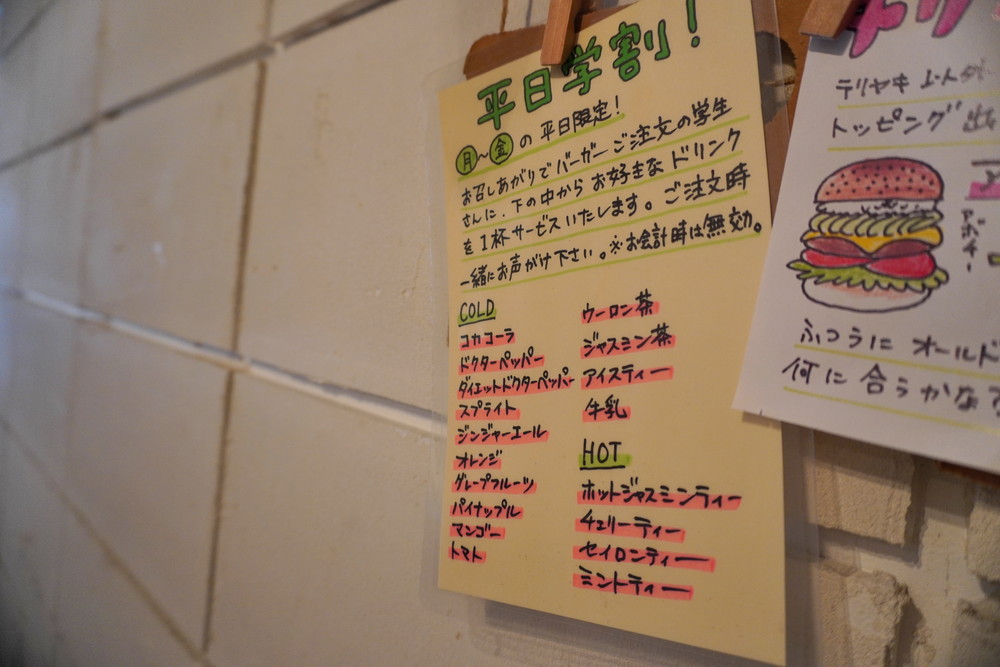 平日学割！
月〜金の平日限定！
お召しあがりでバーガーご注文の学生
さんに、下の中からお好きなドリンク
を1杯サービスいたします。ご注文時
一緒にお声がけ下さい。※お会計時は無効。
COLD
コカコーラ
ドクターペッパー
ダイエットドクターペッパー
スプライト
ジンジャーエール
オレンジ
グレープフルーツ
パイナップル
マンゴー
トマト
ウーロン茶
ジャスミン茶
アイスティー
牛乳
HOT
ホットジャスミンティー
チェリーティー
セイロンティー
ミントティー
テリヤキ以外
トッピング
アボ
ふつうに オールド
何に合うかな